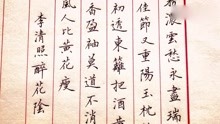 霧濃雲愁永晝瑞
佳節又重陽玉枕
初透東籬把酒黃
香盈袖莫道不消
風人比黃花瘦
李清照醉花陰